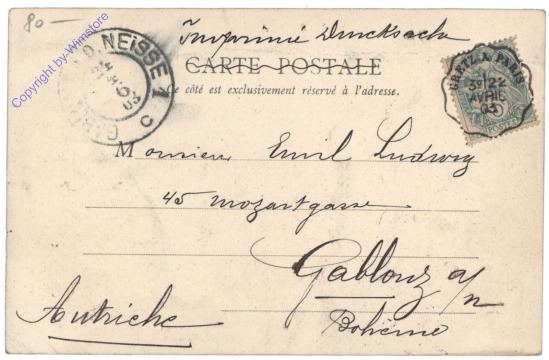 80-
Copyright by Winstore
Imprimé Drucksache
CARTE POSTALE
Ce côté est exclusivement réservé à l'adresse.
NEISSE
GRETZ A PARIS
3E 22
AVRIL
03
POSTES
Monsieur Emil Ludwig
45 Mozartgasse
Gablonz a/n
Autriche
Bohême